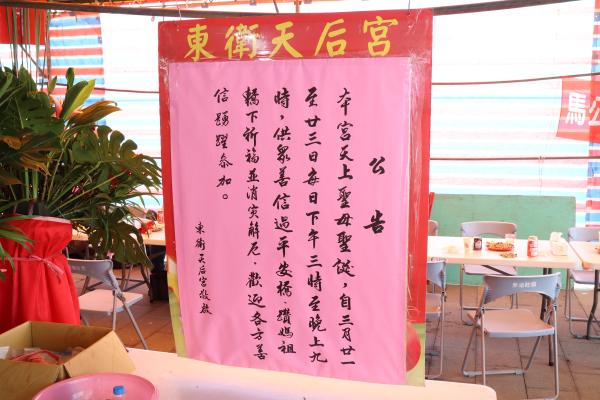 東衛天后宮
公告
本宮天上聖母聖誕，自三月廿一
至廿三日每日下午三時至晚上九
時，供眾善信過平安橋、鑽媽祖
轎下祈福並消災解厄，歡迎各方善
信踴躍參加。
東衛天后宮敬啟
馬公